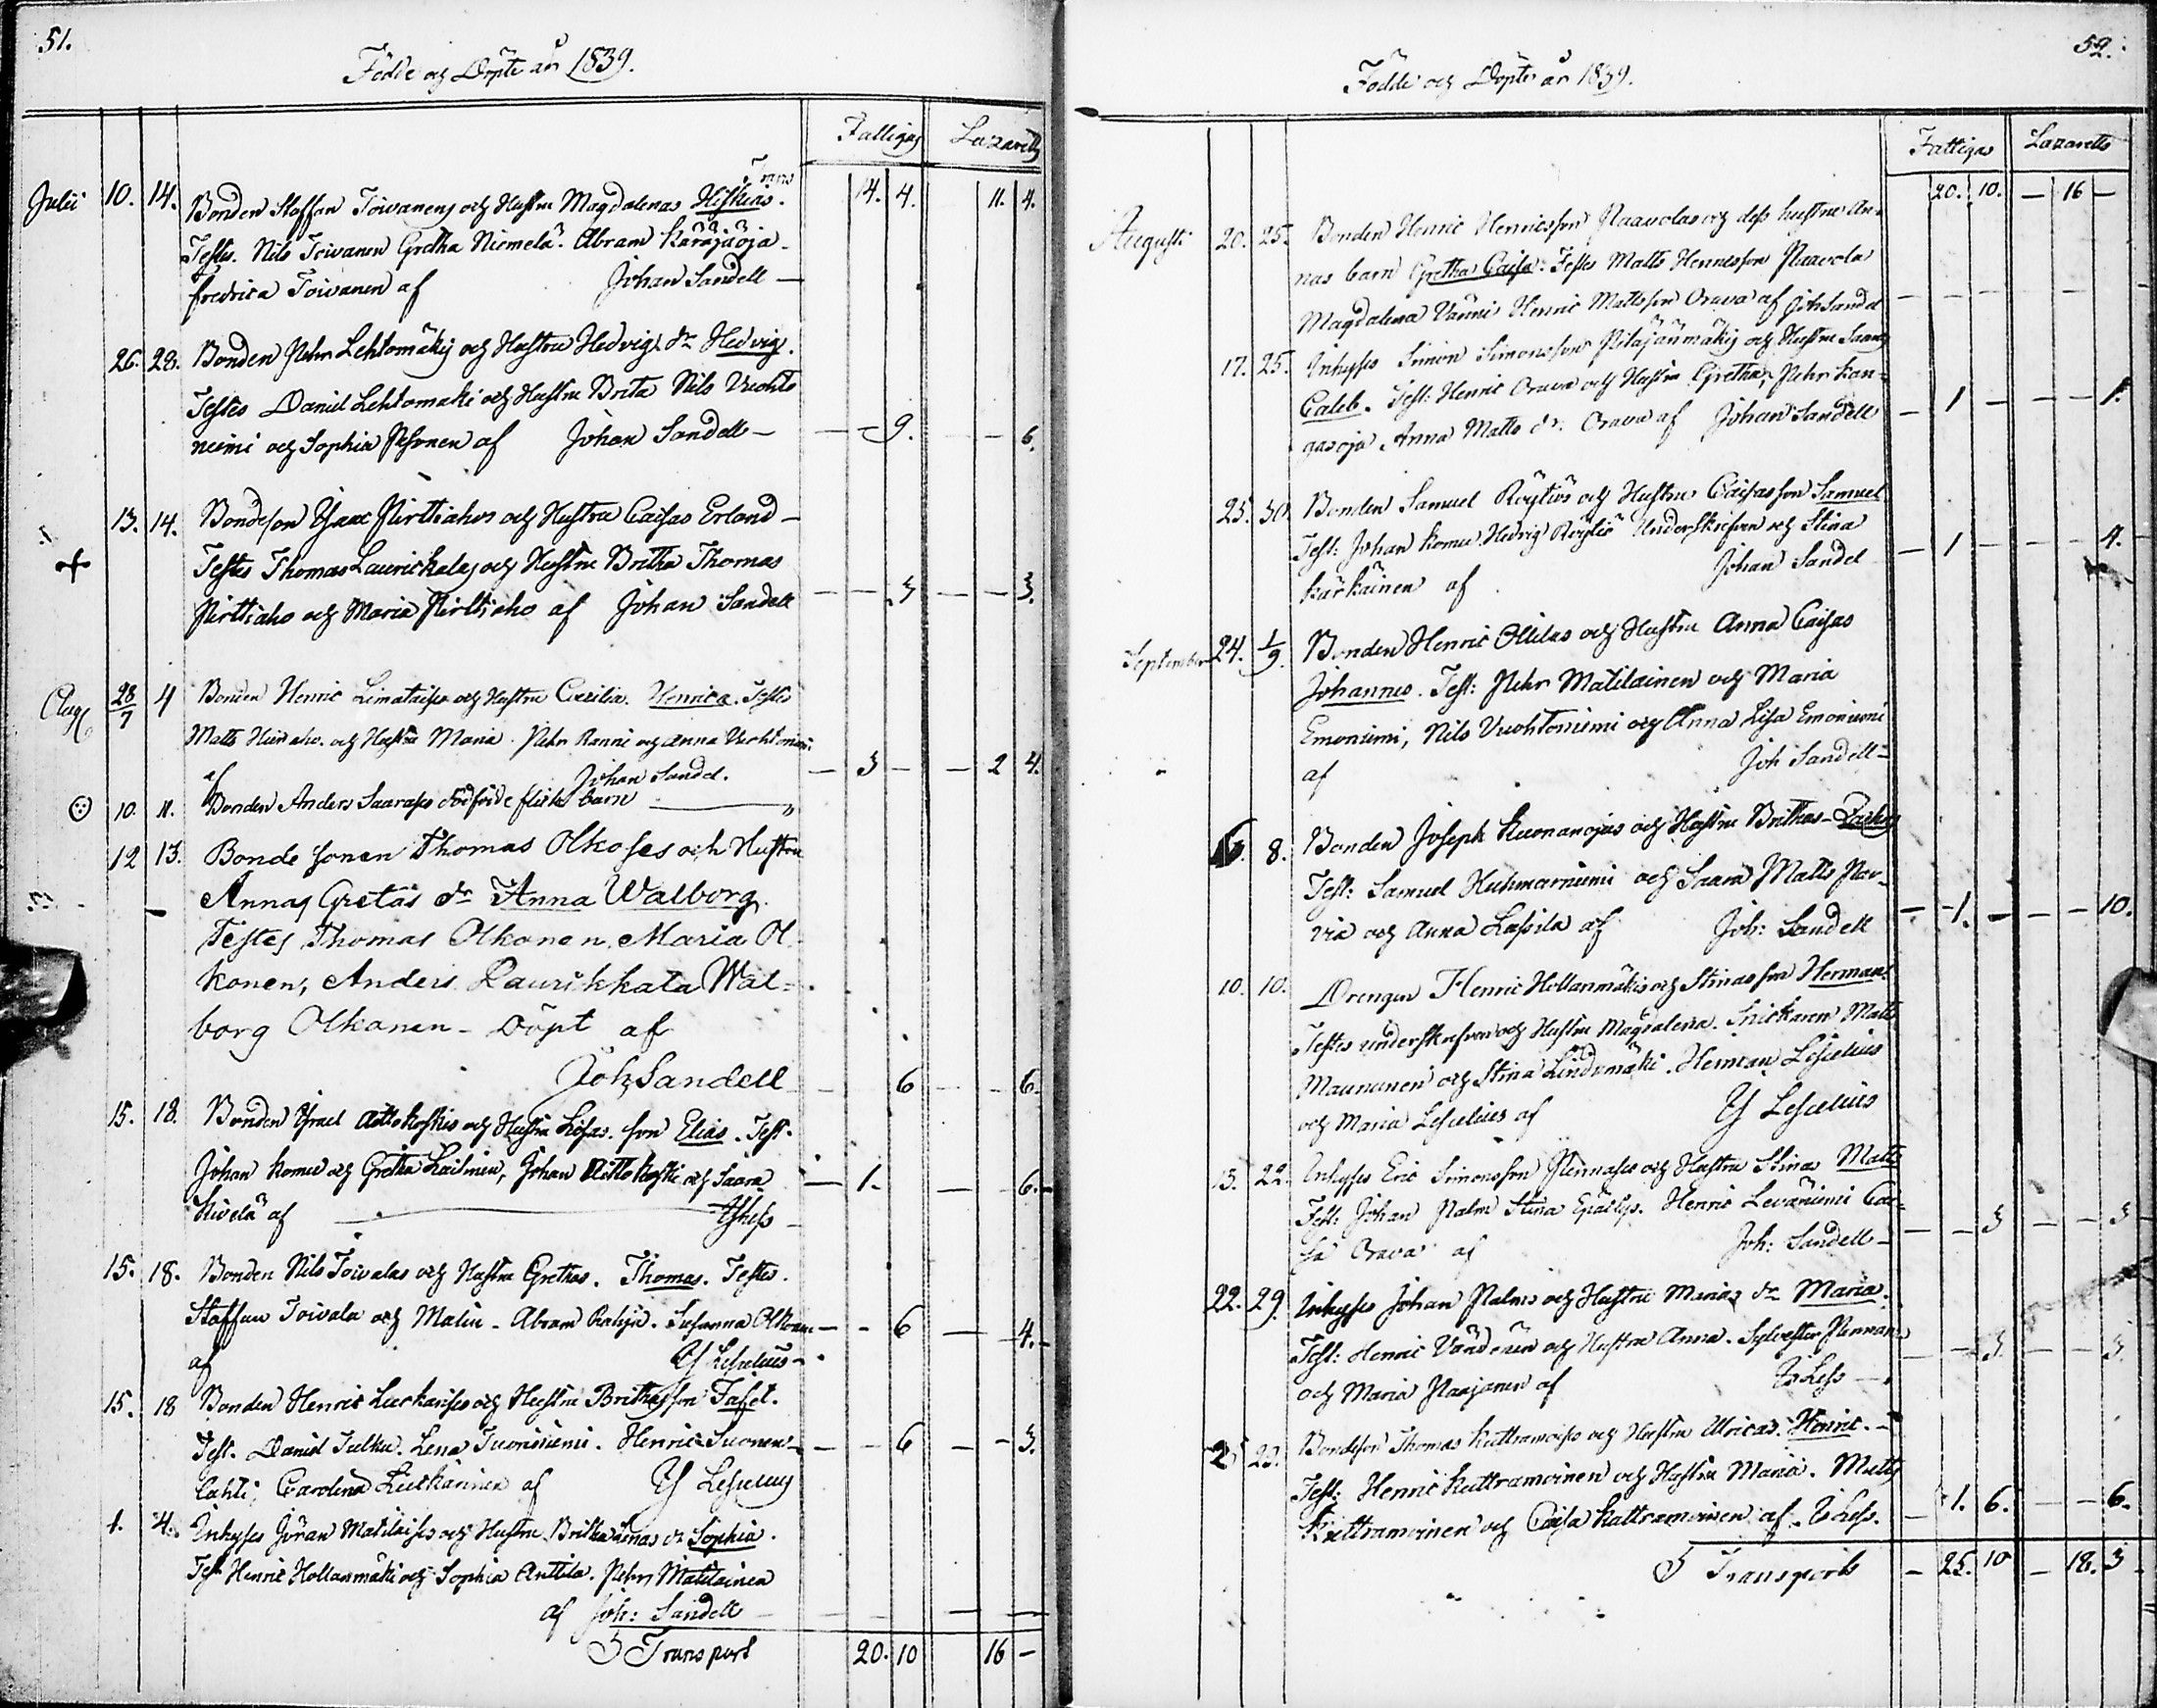 51.
Födde och Döpte år 1839.
Fattigas Lazaretts
Trans
Julii 10. 14. Bonden Staffan Toivanens och Hustru Magdalenas Hiskias. 14. 4. 11. 4.
Testes. Nils Toivanen Gretha Niemelä. Abram Karäjäoja
fredrica Toivanen af Johan Sandell —
26. 28. Bonden Pehr Lehtomäkis och Hustru Hedvigs dr Hedvig.
Testes Daniel Lehtomäki och Hustru Brita Nils Vuohto
niemi och Sophia af Johan Sandell — — — 9. — — 6.
13. 14. Bondeson Isaac Pirttiahos och Hustru Caisas Erland —
Testes Thomas Laurickalas och Hustru Britha Thomas
Pirttiaho och Maria Pirttiaho af Johan Sandell — — 3 — — 3.
Aug 28/7 4 Bonden Henric Limatais och Hustru Cecilia. Henrica. Testes
Matts Heinaho. och Hustru Maria. Pehr Ranni och Anna Vuohtoniemi
af Johan Sandel. — 3 — — 2 4.
10. 11. Bonden Anders Saarases dödfödde flicke barn — "
12 13. Bonde sonen Thomas Olkoses och Hustru
Annas Gretas dr Anna Walborg
Testes Thomas Olkonen. Maria Ol-
konen, Anders Laurikkala Wal=
borg Olkonen — Döpt af
Joh Sandell — 6 — 6.
15. 18. Bonden Israel Aittokoskis och Hustru Lisas. son Elias. Test.
Johan Komu och Gretha Laitinen, Johan Aittokoski och Saara — 1. — 6. —
Kivelä af Less
15. 18. Bonden Nils Toivalas och Hustru Grethas. Thomas. Testes.
Staffan Toivala och Malin — Abram. Susanna Olkonen — — 6 — 4. —
af Y Lescelius —
15. 18 Bonden Henric Luckarises och Hustru Brithas son Tafet.
Test. Daniel Julku. Lena Tuoriniemi. Henric Suonen — — — 6 — — 3.
lahti, Carolina af Y Lescelius
1. 4. Inhyses Jöran Matilaises och Hustru Britha Lenas dr Sophia.
Test Henric Hollanmäki och Sophia Anttila. Pehr Matilainen
af Joh: Sandell —
S Transport 20. 10 16 —
52.
Födde och Döpte år 1839.
Fattigas Lazaretts
20. 10. — 16 —
Augusti 20. 25. Bonden Henric Henricsson Paavolas och dess hustru An-
nas barn Gretha Caisa. Testes Matts Henricsson Paavola
Magdalena Vänni Henric Mattsson Orava af Joh Sandel — — — — — —
17. 25. Inhyses Simon Simonsson Pitäjänmäkis och Hustru Saaras
Caleb. Test: Henric Orava och Hustru Gretha, Pehr Kan-
gasoja Anna Matts dr. Orava af Johan Sandell — 1 — — — 1.
25. 30. Bonden Samuel Röytiös och Hustru Caisas son Samuel
Test: Johan Komu Hedvig Röytiö Underskrifven och Stina
Kärkäinen af Johan Sandel — 1 — — — 4.
September 24. 1/9. Bonden Henric Ollilas och Hustru Anna Caisas
Johannes. Test: Pehr Matilainen och Maria
Emoniemi, Nils Vuohtoniemi och Anna Lisa Emoniemi
af Joh Sandell —
6. 8. Bonden Joseph Kuonanojas och Hustru Brithas —
Test: Samuel Huhmarniemi och Saara Matts Par-
via och Anna Lassila af Joh: Sandell — 1. — — — 10.
10. 10. Drengen Henric Hollanmäkis och Stinas son Herman
Testes underskrefven och Hustru Magdalena. Snickaren Matts
Maununen och Stina Lindumäki. Herman Lescelius
och Maria Lescelius af Y Lescelius
13. 22. Inhyses Eric Simonsson Pennases och Hustru Stinas Matts
Test: Johan Palm Stina. Henric Leväniemi Cai-
sa Orava af Joh: Sandell — — — 3 — — 3
22. 29. Inhyses Johan Palms och Hustru Marias dr Maria.
Test: Henric Vändänen och Hustru Anna. Sylvester Pennanen — — 3. — — 3.
och Maria Paajanen af Less —
25 29. Bondeson Thomas Kuttramoises och Hustru Ulricas. Henric. —
Test: Henric Kuttramoinen och Hustru Maria. Matts
Kuttramoinen och Caisa Kuttramoinen af Less. — 1. 6. — — 6.
S Transports — 25. 10 — 18. 3